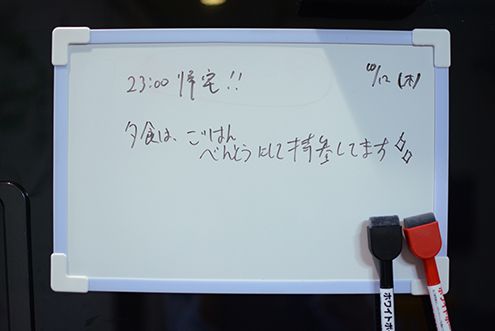 23:00 帰宅!! 10/12 (木)
夕食は、ごはん
べんとうにして持参してます
ホワイトボ